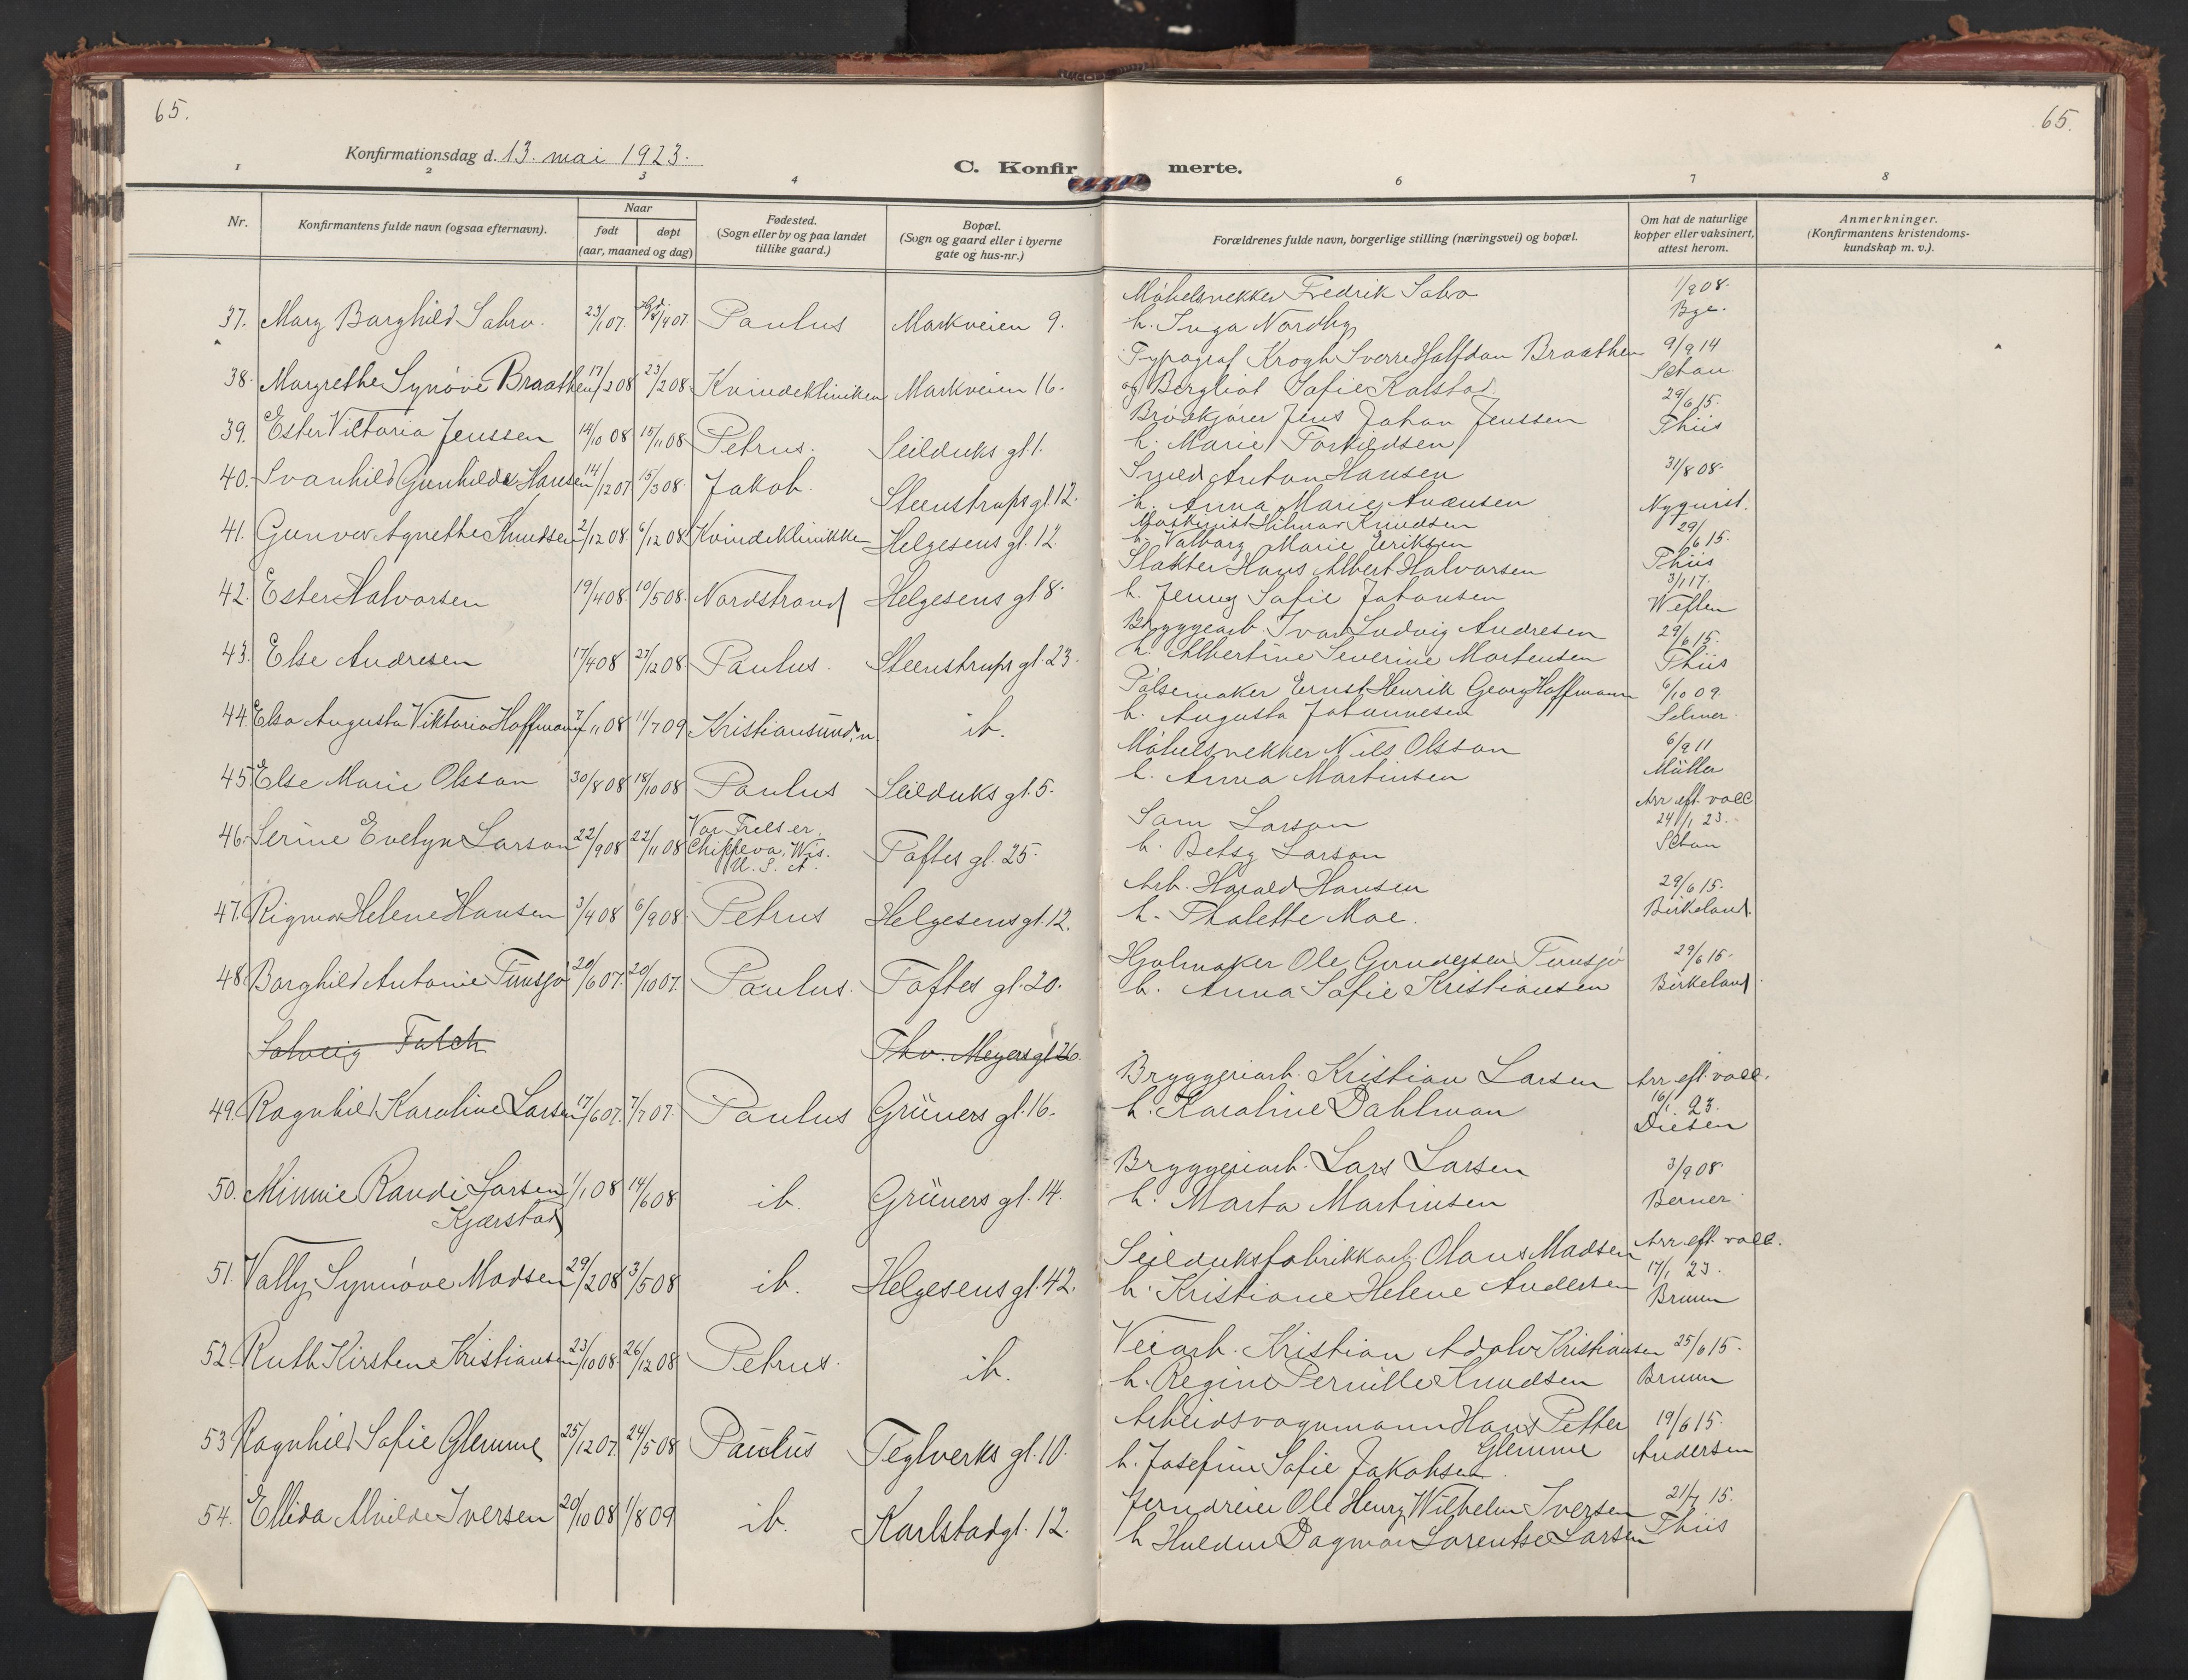 65.
65.
Konfirmationsdag d. 13. mai 1923.
C. Konfirmerte.
1 2 3 4 6 7 8
Nr.
Konfirmantens fulde navn (ogsaa efternavn).
Naar
født døpt
(aar, maaned og dag)
Fødested.
(Sogn eller by og paa landet
tillike gaard.)
Bopæl.
(Sogn og gaard eller i byerne
gate og hus-nr.)
Forældrenes fulde navn, borgerlige stilling (næringsvei) og bopæl.
Om hat de naturlige
kopper eller vaksinert,
attest herom.
Anmerkninger.
(Konfirmantens kristendoms-
kundskap m. v.).
Møbelsnekker Fredrik Sahro 1/9 08.
37. Mary Borghild Sahro. 23/1 07. Paulus Markveien 9. h. Inga Nordby Bge.
Typograf Krogh Sverre Halfdan Braathen 9/9 14
38. Margrethe Synøve Braathen 17/2 08 23/2 08. Kvindekliniken Markveien 16. og Bergliot Sofie Kalstad
Brødkjører Jens Johan Jenssen 29/6 15.
39. Ester Victoria Jenssen 14/10 08 15/11 08 Petrus. Seilduks gt. 1. h. Marie Torkildsen Thiis
Smed Anton Hansen 31/8 08.
40. Svanhild Gunhilde Hansen 14/12 07 15/3 08. Jakob. Steenstrups gt. 12. h. Anna Marie Nyquist.
Maskinist Hilmar Knudsen 29/6 15.
41. Gunvor Agnethe Knudsen 2/12 08. 6/12 08 Kvindeklinikken Helgesens gt. 12. h. Valborg Marie Eriksen Thiis
Slakter Hans Albert Halvorsen 3/1 17.
42. Ester Halvorsen 19/4 08. 10/5 08. Nordstrand Helgesens gt 8. h. Jenny Sofie Johansen
Bryggearb. Ivar Ludvig Andresen 29/6 15.
43. Else Andresen 17/4 08 27/12 08 Paulus. Steenstrups gt. 23. h. Albertine Severine Mortensen Thiis
Pølsemaker Ernst Henrik Georg Hoffmann 6/10 09.
44. Elsa Augusta Viktoria Hoffmann 7/11 08 11/7 09 Kristiansund. n. ib. h. Augusta Johannesen Selmer.
Møbelsnekker Nils Olsson 6/9 11
45 Else Marie Olsson 30/8 08 18/10 08 Paulus Seilduks gt. 5. h. Anna Martinsen Müller
Arr eft. vacc
Vor Frelser. Sam Larson 24/1 23.
46. Serine Evelyn Larson 22/9 08 22/11 08 Chippeva, Wis. Toftes gt. 25. h. Betsy Larson
U. S. A.
Arb. Harald Hansen 29/6 15.
47. Rigmor Helene Hansen 3/4 08 6/9 08 Petrus Helgesens gt. 12. h. Thalette Moe. Birkeland.
Hjulmaker Ole Gundersen Funsjø 29/6 15.
48. Borghild Antonie Funsjø 20/6 07. 20/10 07. Paulus. Toftes gt. 20. h. Anna Sofie Kristiansen Birkeland.
Solveig Falch Thv. Meyers gt 26.
Bryggeriarb. Kristian Larsen Arr eft. vacc.
49. Ragnhild Karoline Larsen 17/6 07. 7/7 07. Paulus Grüners gt. 16. h. Karoline Dahlman 16/1 23.
Diesen
Bryggeriarb. Lars Larsen 3/9 08.
50. Minnie Randi Larsen 1/1 08 14/6 08 ib. Grüners gt. 14. h. Marta Martinsen Berner.
Kjærstad
Seilduksfabrikkarb. Olaus Madsen Arr. eft. vacc.
51. Vally Synnøve Madsen 29/2 08 3/5 08 ib. Helgesens gt. 42. h. Kristiane Helene Andersen 17/1 23.
Bruun
Veiarb. Kristian Adolv Kristiansen 25/6 15.
52. Ruth Kirstene Kristiansen 23/10 08. 26/12 08 Petrus. ib. h. Regine Pernille Knudsen Bruun
Arbeidsvognmann Hans Petter 19/6 15.
53 Ragnhild Sofie Glemme 25/12 07. 24/5 08 Paulus Teglverks gt. 10. Glemme Andersen
h. Josefine Sofie Jakobsen.
Jerndreier Ole Henry Wilhelm Iversen 15.
54. Ellida Alvilde Iversen 20/10 08 1/8 09 ib. Karlstadgt. 12. h Dagmar Lorentse Larsen Thiis